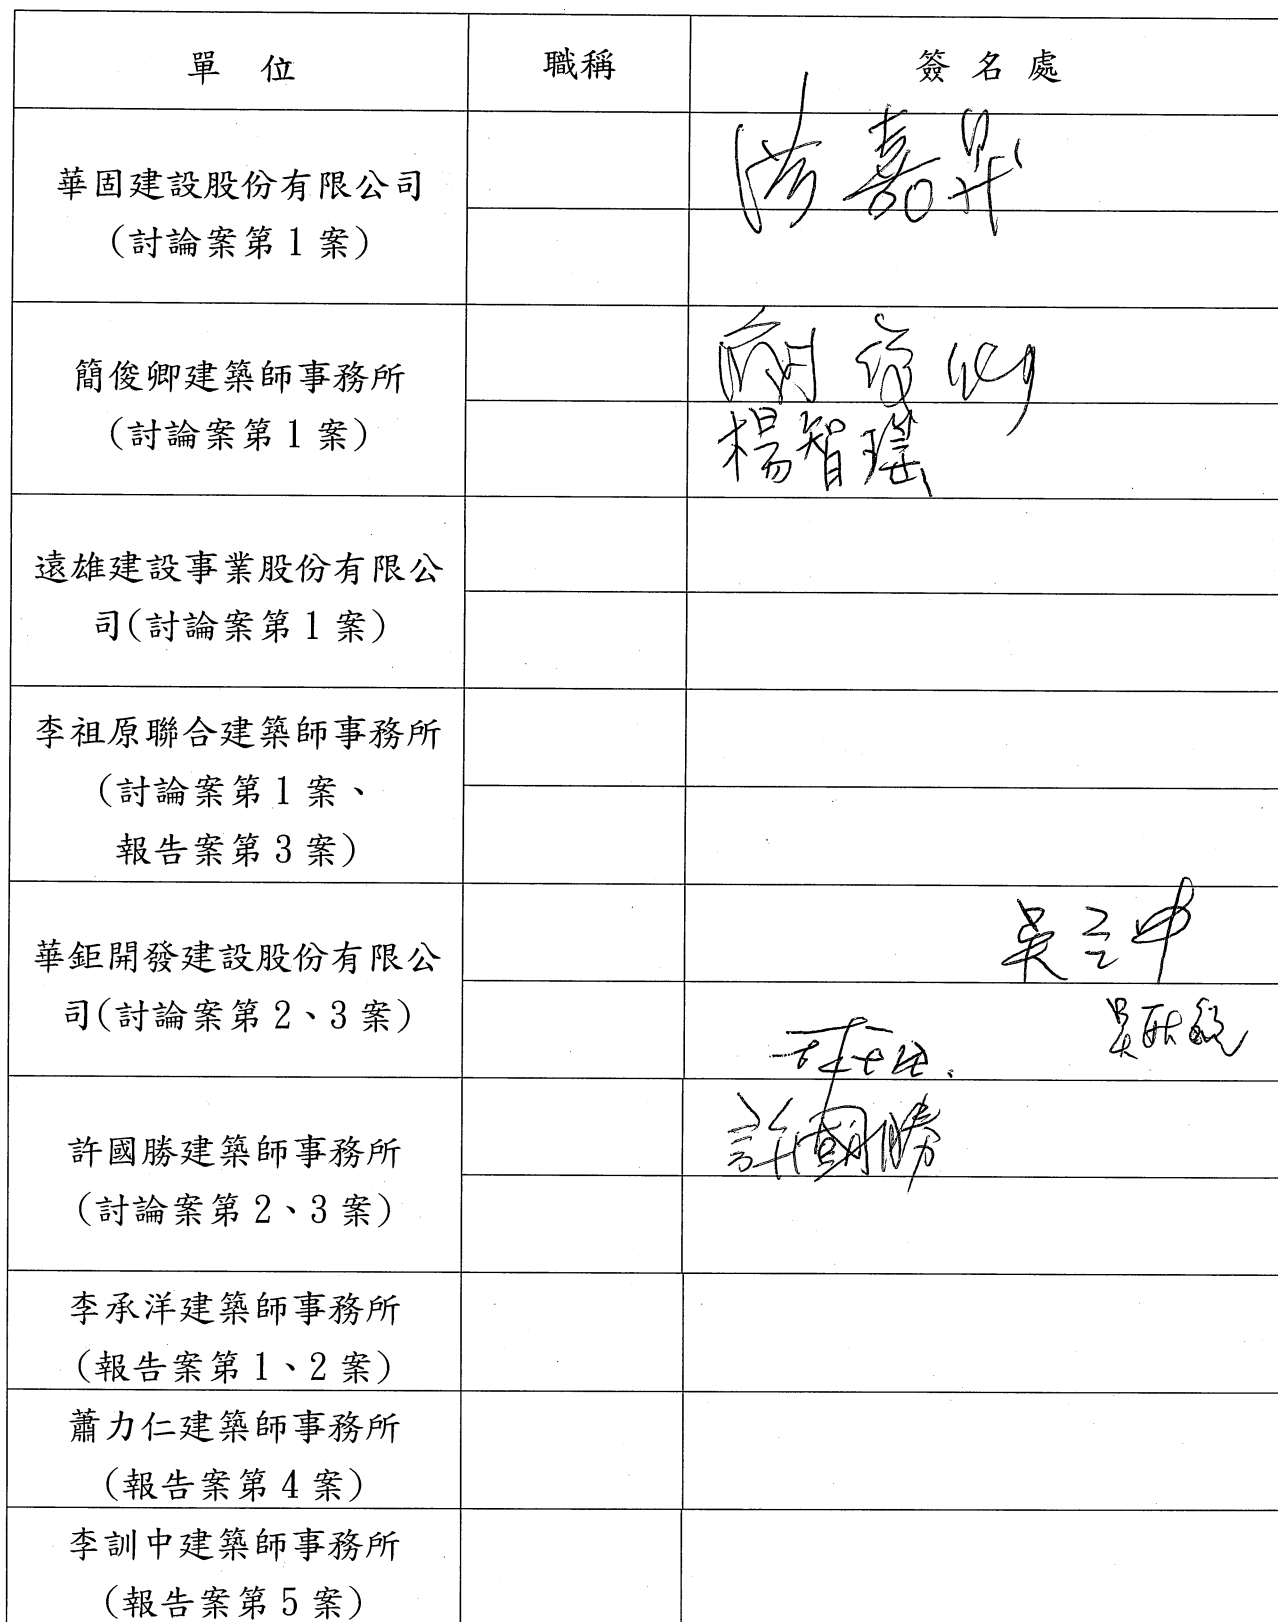 單 位 職稱 簽 名 處
華固建設股份有限公司
(討論案第 1 案)
嘉昇
簡俊卿建築師事務所
(討論案第 1 案)
簡俊卿
楊智
遠雄建設事業股份有限公
司(討論案第 1 案)
李祖原聯合建築師事務所
(討論案第 1 案、
報告案第 3 案)
華鉅開發建設股份有限公
司(討論案第 2、3 案)
吳立中
吳
許國勝建築師事務所
(討論案第 2、3 案)
許國勝
李承洋建築師事務所
(報告案第 1、2 案)
蕭力仁建築師事務所
(報告案第 4 案)
李訓中建築師事務所
(報告案第 5 案)